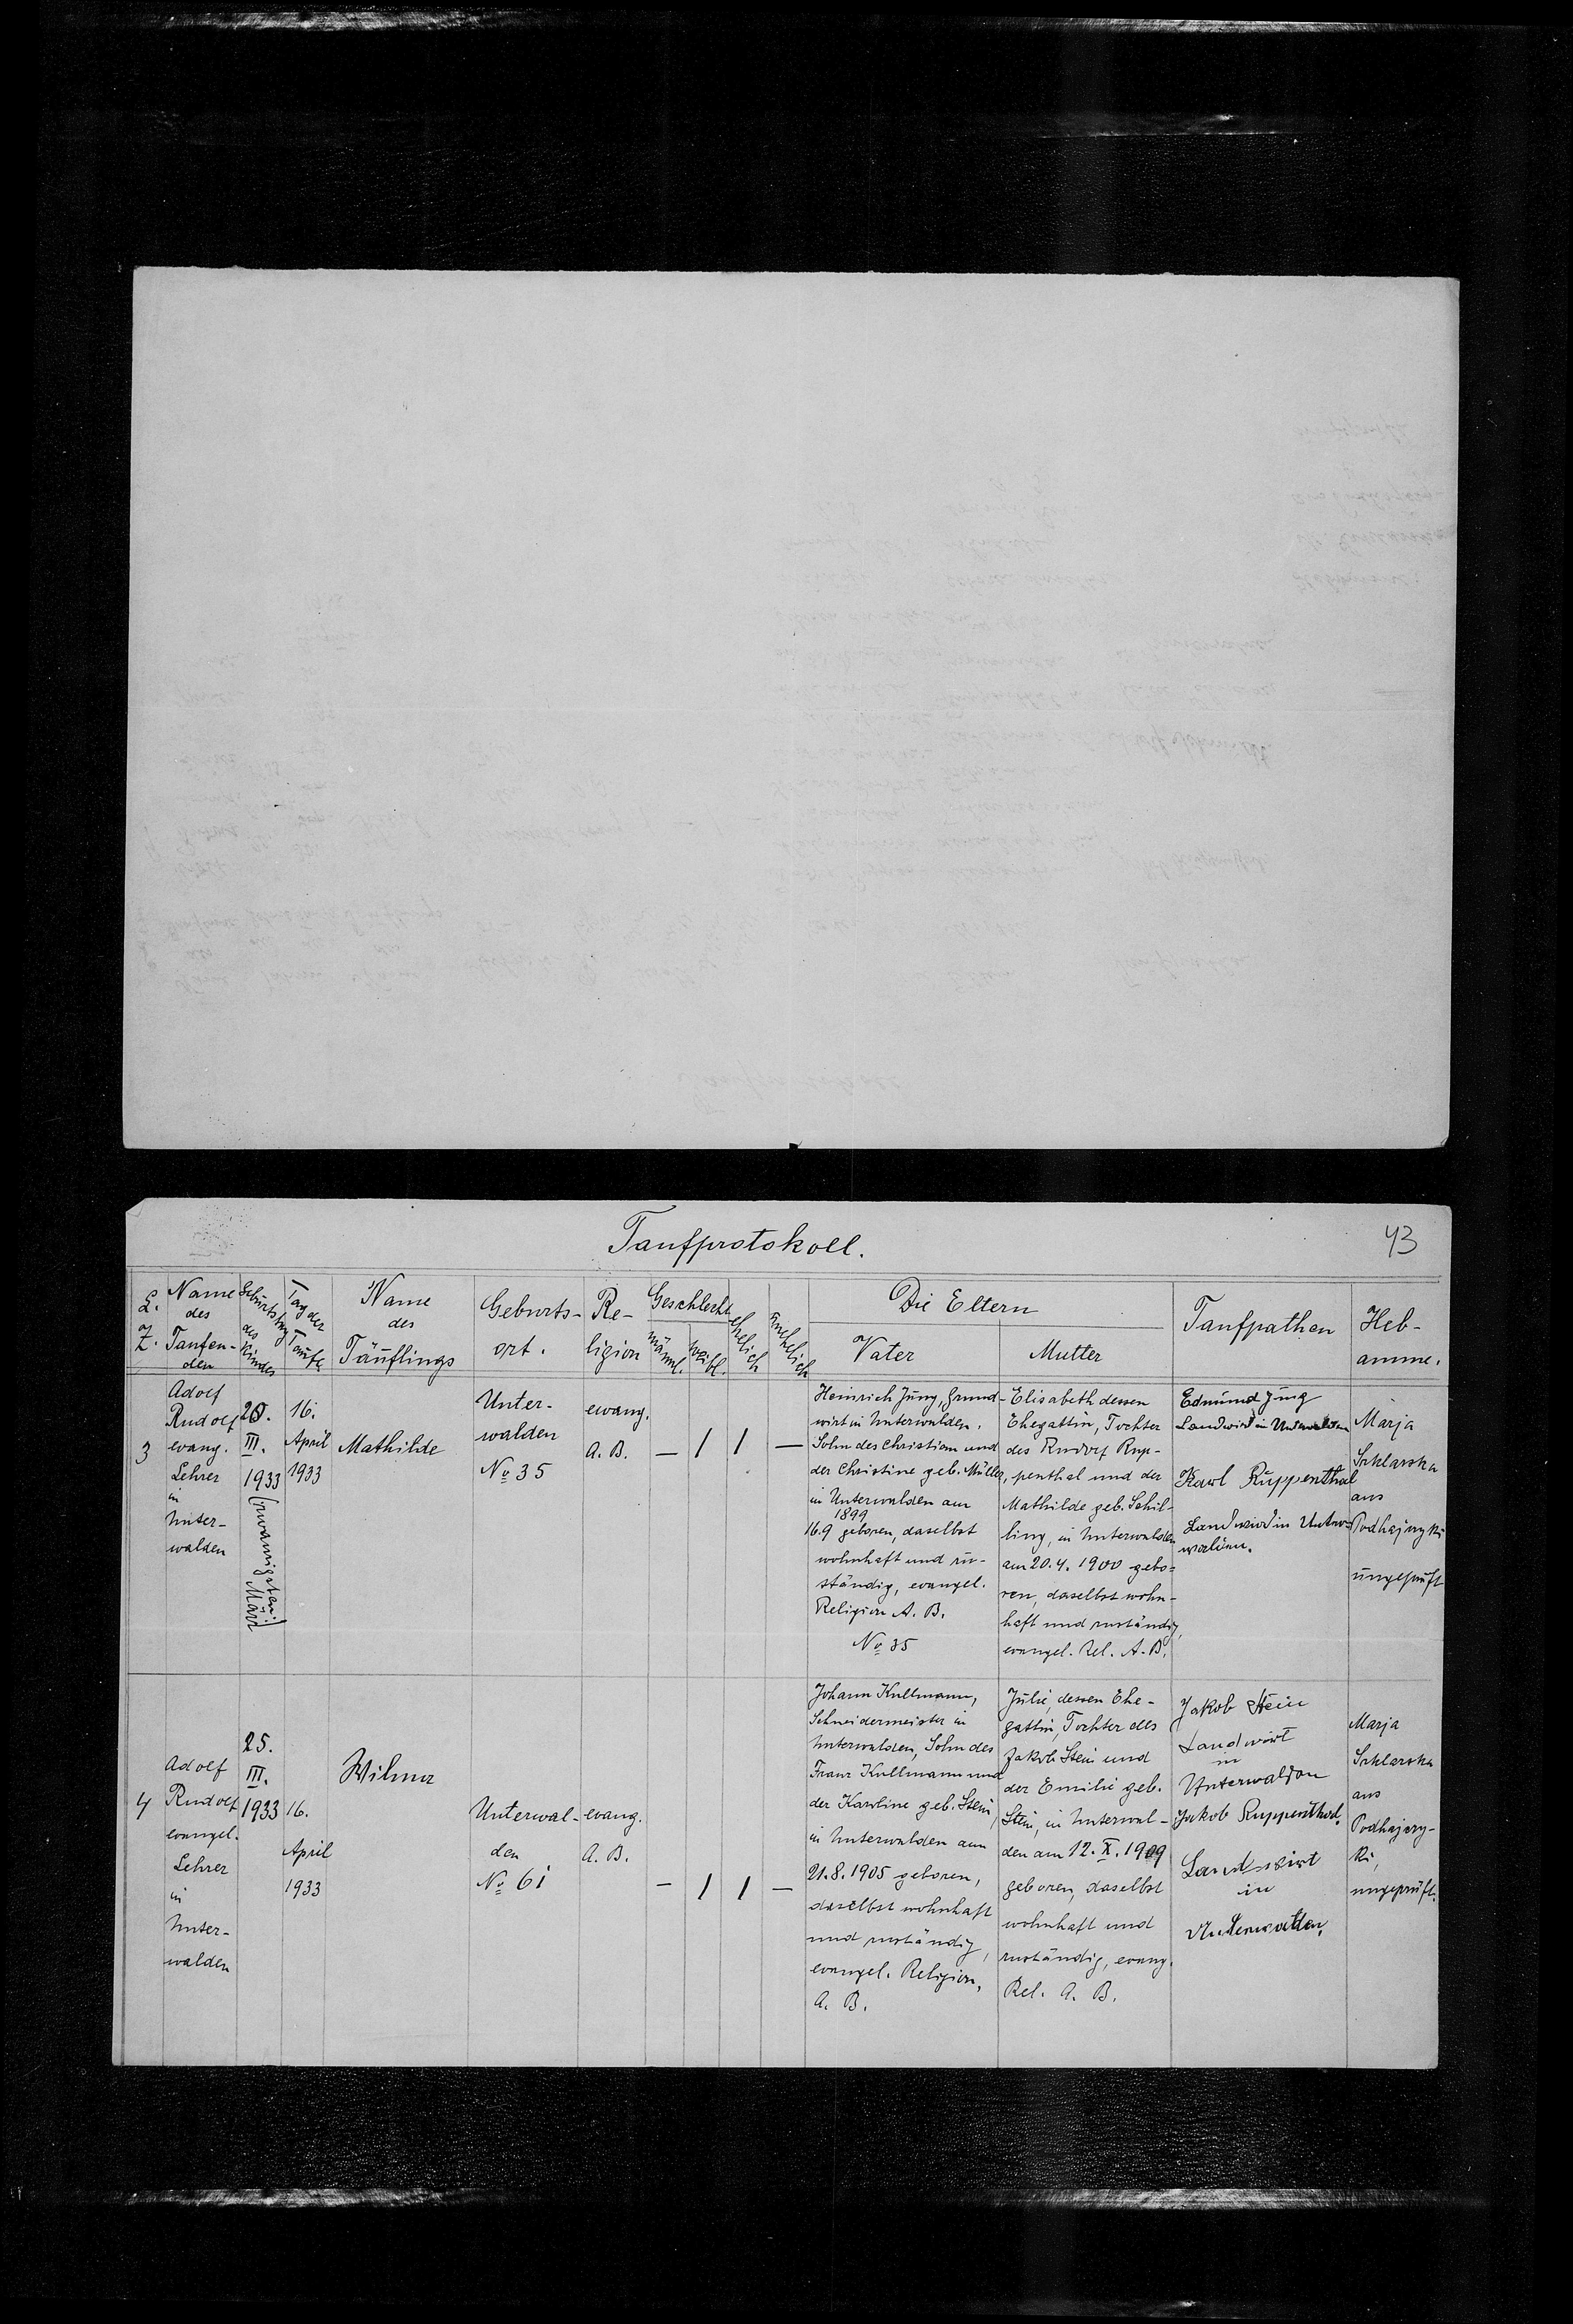 Taufprotokoll.
43
L. Z.
Name des Taufenden
Geburtstag des Kindes
Tag der Taufe
Name des Täuflings
Geburtsort.
Religion
Geschlecht
männl.
weibl.
ehelich
unehelich
Die Eltern
Vater
Mutter
Taufpathen
Hebamme.
3
Adolf
Rudolf
evang.
Lehrer
in
Unter-
walden
20.
III.
1933
(:zwanzigsten:)
März
16.
April
1933
Mathilde
Unter-
walden
No 35
evang.
A. B.
—
1
1
—
Heinrich Jung, Grund-
wirt in Unterwalden.
Sohn des Christian und
der Christine geb. Müller,
in Unterwalden am
1899
16.9 geboren, daselbst
wohnhaft und zu-
ständig, evangel.
Religion A. B.
No 35
Elisabeth dessen
Ehegattin, Tochter
des Rudolf Rup-
penthal und der
Mathilde geb. Schil-
ling, in Unterwalden
am 20.4. 1900 gebo-
ren, daselbst wohn-
haft und zuständig,
evangel. Rel. A. B.
Edmund Jung
Landwird in Unterwalden
Karl Ruppenthal
Landwird in Unter-
walden.
Marja
Szklarska
aus
Podhajczyki
ungeprüft
4
Adolf
Rudolf
evangel.
Lehrer
in
Unter-
walden
25.
III.
1933
16.
April
1933
Wilma
Unterwal-
den
No 61
evang.
A. B.
—
1
1
—
Johann Kullmann,
Schneidermeister in
Unterwalden, Sohn des
Franz Kullmann und
der Karoline geb. Stein,
in Unterwalden am
21.8.1905 geboren,
daselbst wohnhaft
und zuständig,
evangel. Religion,
A. B.
Julie, dessen Ehe-
gattin, Tochter des
Jakob Stein und
der Emilie geb.
Stein, in Unterwal-
den am 12. X. 1909
geboren, daselbst
wohnhaft und
zuständig, evang.
Rel. A. B.
Jakob Stein
Landwirt
in
Unterwalden
Jakob Ruppenthal.
Landwirt
in
Unterwalden.
Marja
Szklarska
aus
Podhajczy-
ki,
ungeprüft.